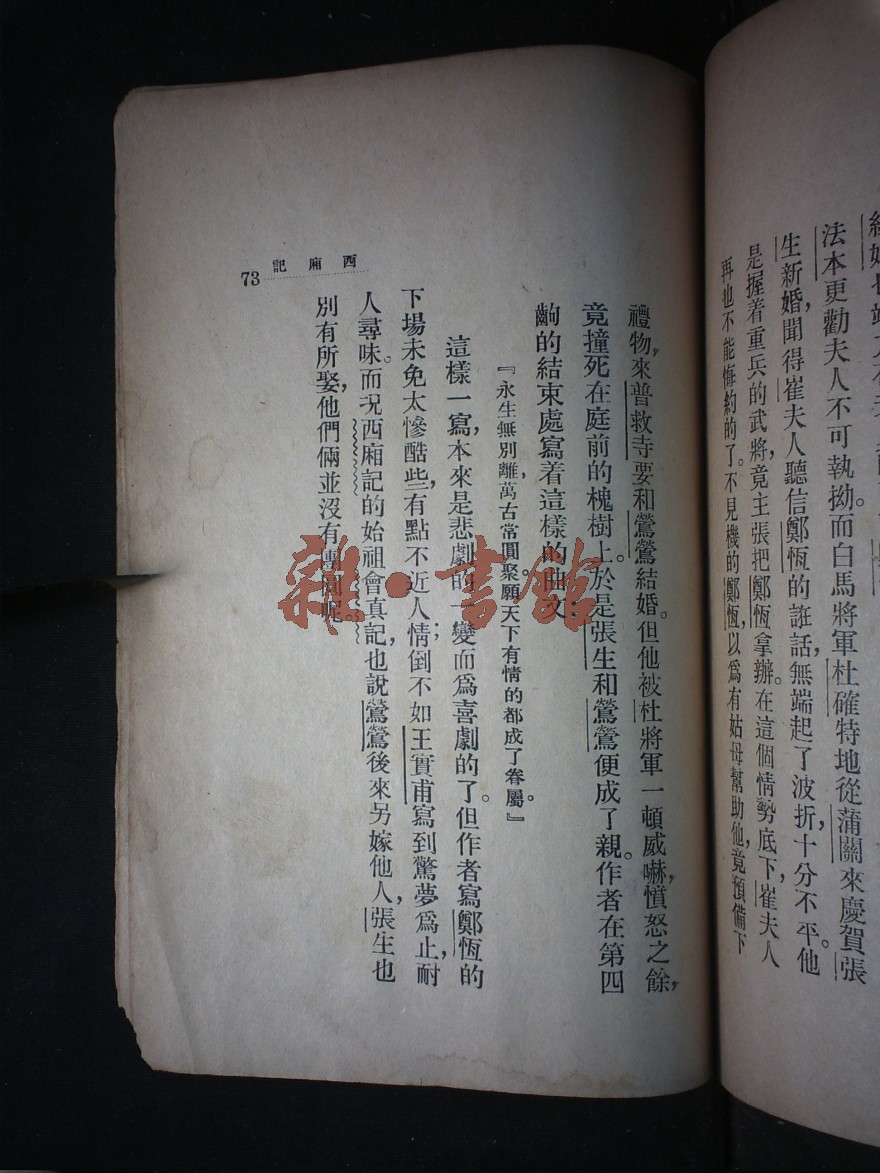 法本更勸夫人不可執拗。而白馬將軍杜確特地從蒲關來慶賀張
生新婚，聞得崔夫人聽信鄭恆的誑話，無端起了波折，十分不平。他
是握着重兵的武將，竟主張把鄭恆拿辦。在這個情勢底下，崔夫人
再也不能悔約的了。不見機的鄭恆，以爲有姑母幫助他，竟預備下
禮物，來普救寺要和鶯鶯結婚。但他被杜將軍一頓威嚇，憤怒之餘，
竟撞死在庭前的槐樹上。於是張生和鶯鶯便成了親。作者在第四
齣的結束處寫着這樣的曲文：
『永生無別離，萬古常圓聚。願天下有情的都成了眷屬。』
這樣一寫，本來是悲劇的一變而爲喜劇的了。但作者寫鄭恆的
下場未免太慘酷些，有點不近人情；倒不如王實甫寫到驚夢爲止，耐
人尋味。而況西廂記的始祖會真記，也說鶯鶯後來另嫁他人，張生也
別有所娶，他們倆並沒有團圓呢。
西廂記
73
雜·書館